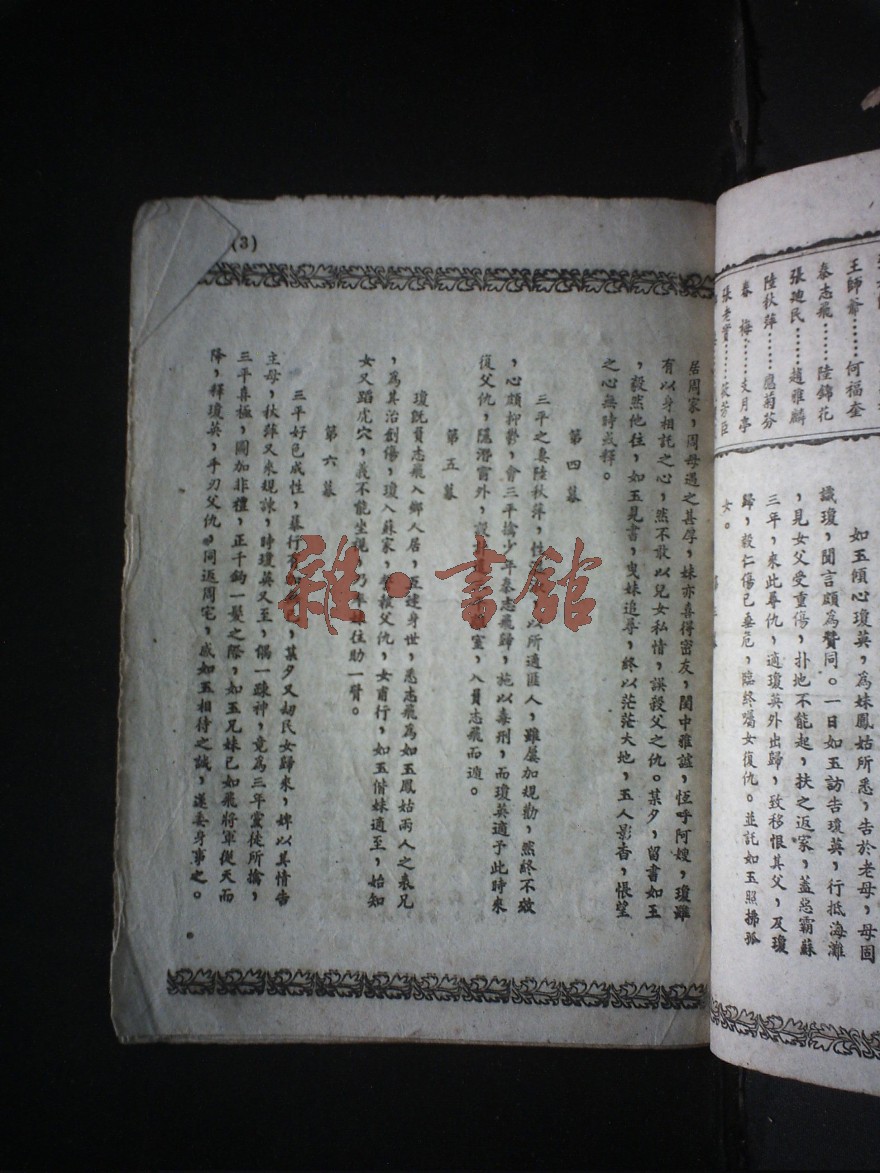 王師爺……何福奎
秦志飛……陸錦花
張迪民……趙雅麟
陸秋萍……應菊芬
春梅……支月亭
如玉傾心瓊英，為妹鳳姑所悉，告於老母，母固
識瓊，聞言頗為贊同。一日如玉訪告瓊英，行抵海灘
，見女父受重傷，扑地不能起，扶之返家，蓋惡霸蘇
三年，來此尋仇，適瓊英外出歸，致移恨其父，及瓊
歸，殺仁傷已垂危，臨終囑女復仇。並託如玉照拂孤
女。
(3)
居周家，周母遇之甚厚，妹亦喜得密友，閨中雅謔，恆呼阿嫂，瓊雖
有以身相託之心，然不敢以兒女私情，誤殺父之仇。某夕，留書如玉
，毅然他往，如玉見書，曳妹追尋，終以茫茫大地，玉人影杳，悵望
之心無時或釋。
第四幕
三平之妻陸秋萍，性 以所適匪人，雖屢加規勸，然終不效
，心頗抑鬱，會三平擒少年秦志飛歸，施以毒刑，而瓊英適于此時來
復父仇，隱潛窗外， 室，入負志飛而遁。
第五幕
瓊既負志飛入鄉人居，互述身世，悉志飛為如玉鳳姑兩人之表兄
，為其治創傷，瓊入蘇家， 殺父仇，女甫行，如玉偕妹適至，始知
女又蹈虎穴，義不能坐視， 妹往助一臂。
第六幕
三平好色成性，暴行有 ，某夕又劫民女歸來，婢以其情告
主母，秋萍又來規諫，時瓊英又至，偶一疎神，竟為三年黨徒所擒，
三平喜極，圖加非禮，正千鈞一髮之際，如玉兄妹已如飛將軍從天而
降，釋瓊英，手刃父仇，同返周宅，感如玉相待之誠，遂委身事之。
雜·書館